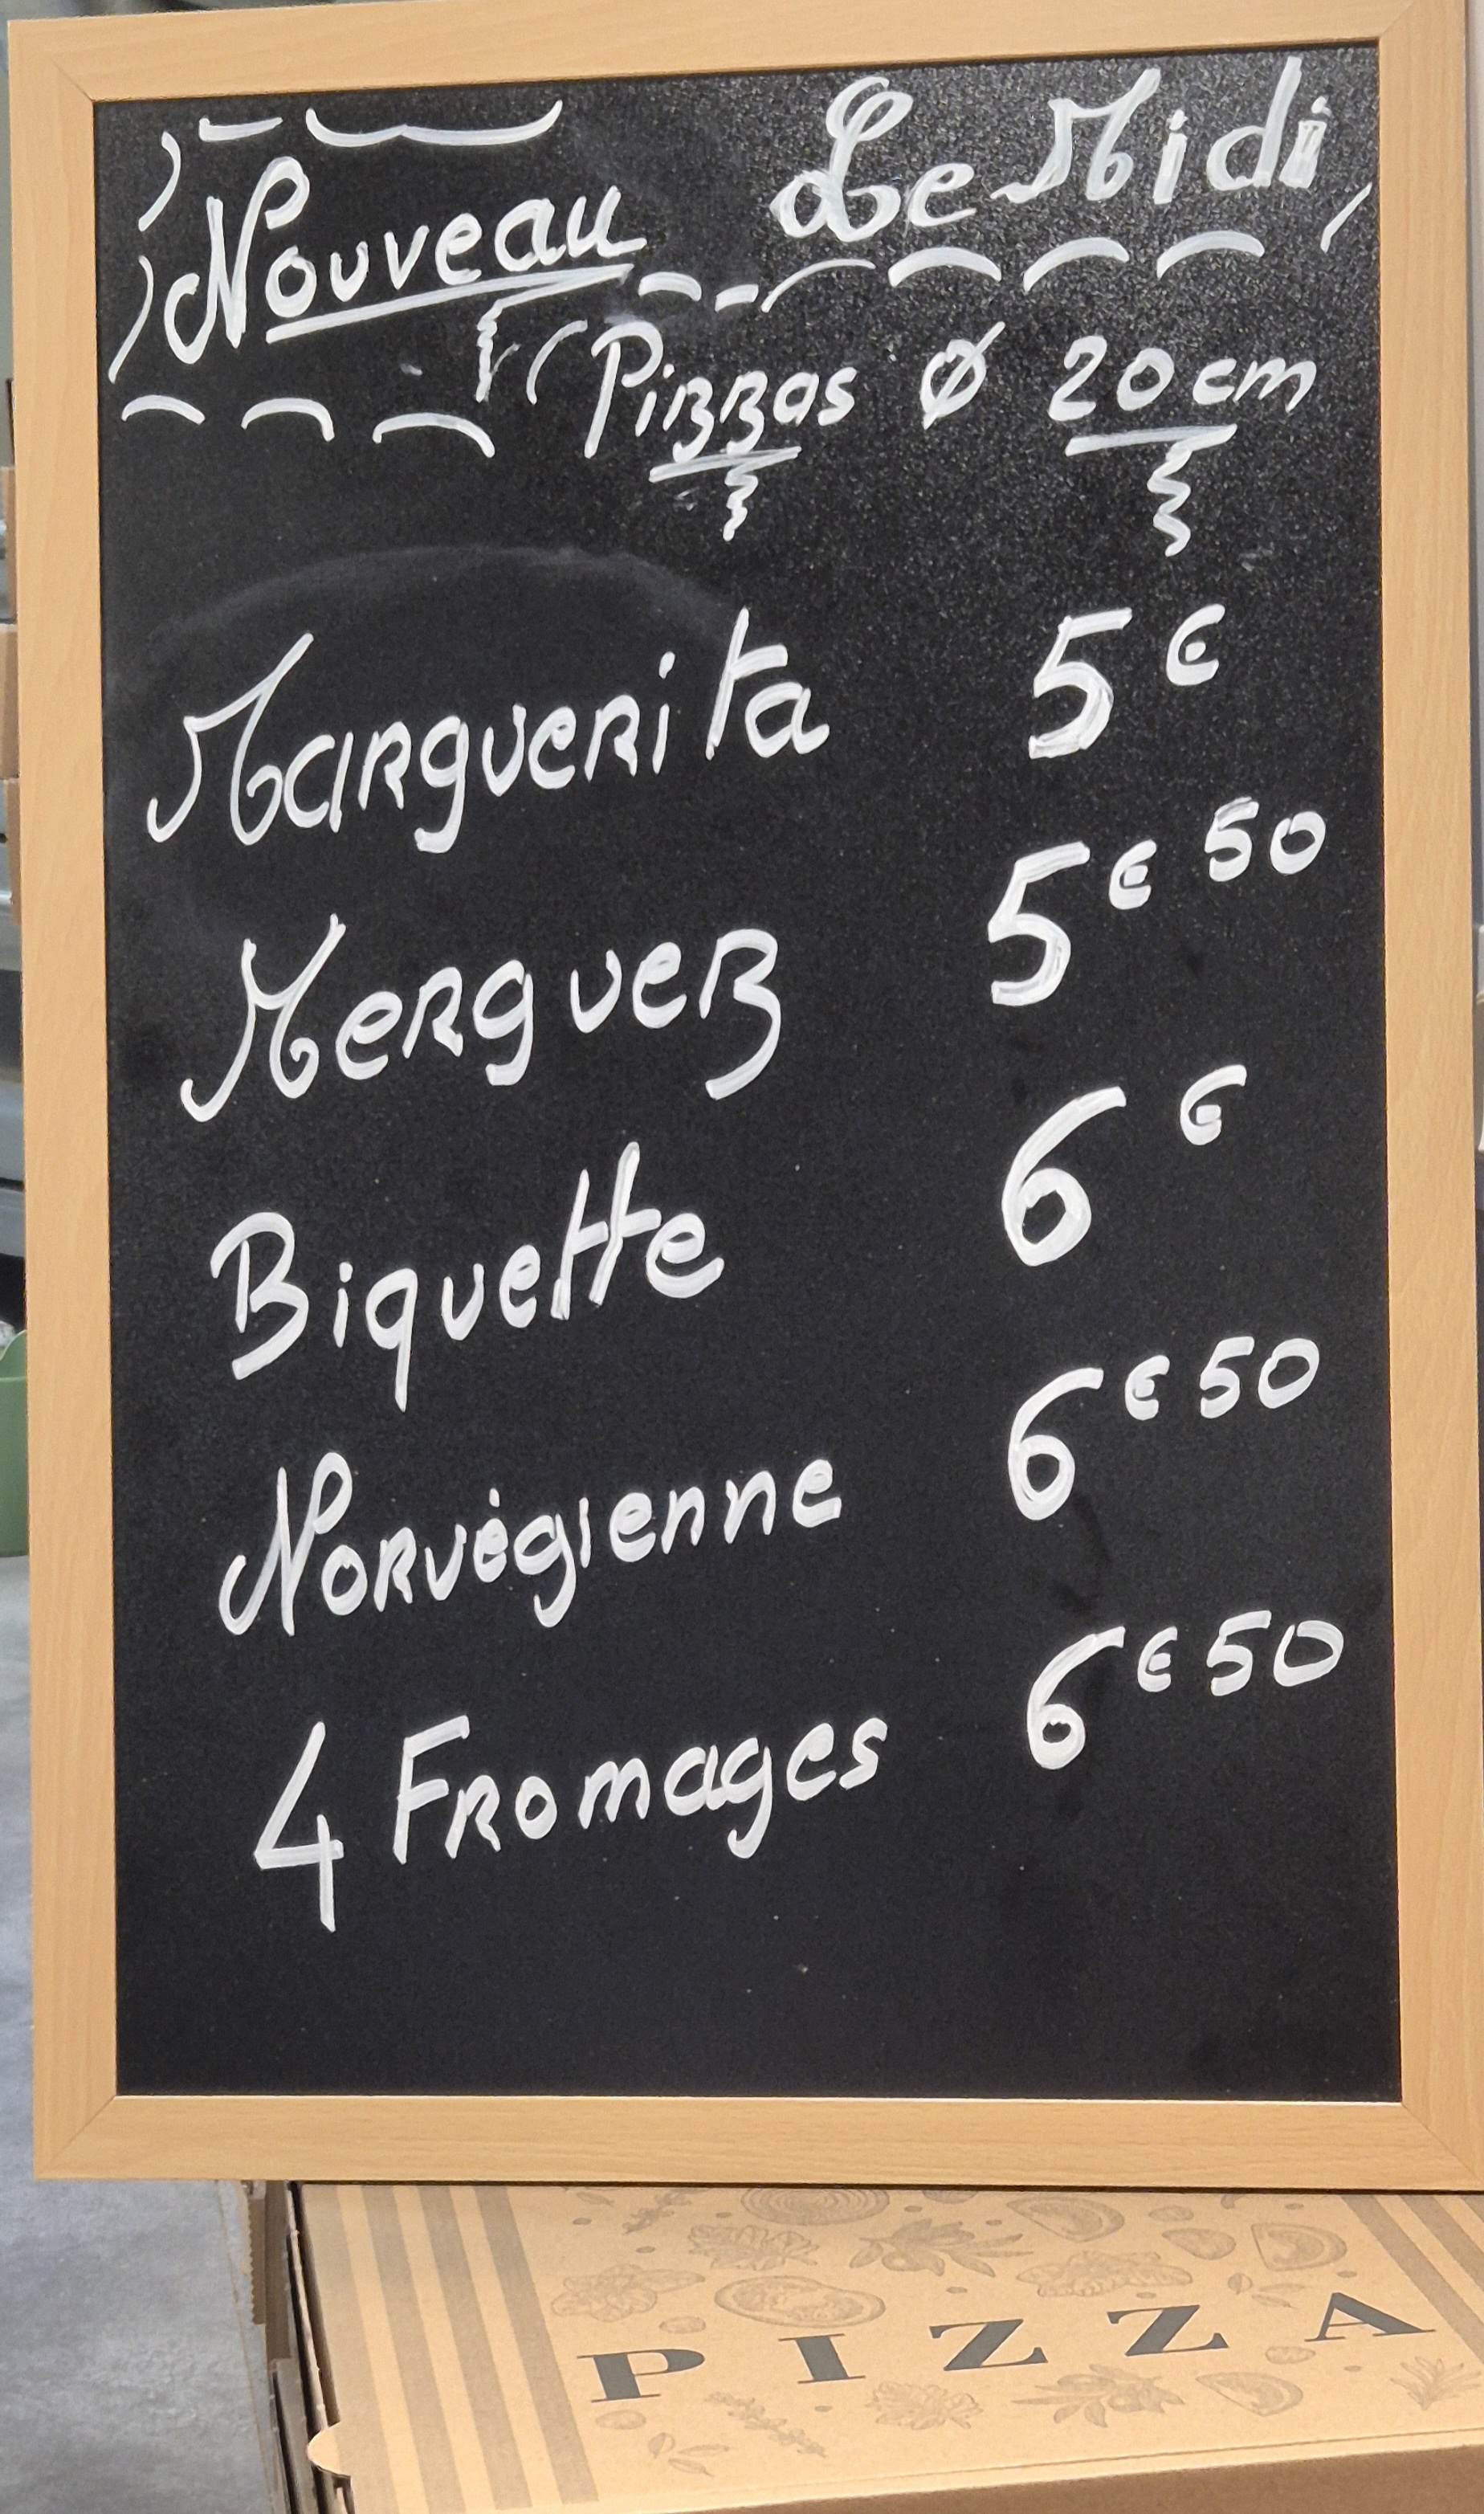 Nouveau Le Midi
Pizzas Ø 20 cm
Marguerita 5€
Merguez 5€50
Biquette 6€
Norvégienne 6€50
4 Fromages 6€50
PIZZA